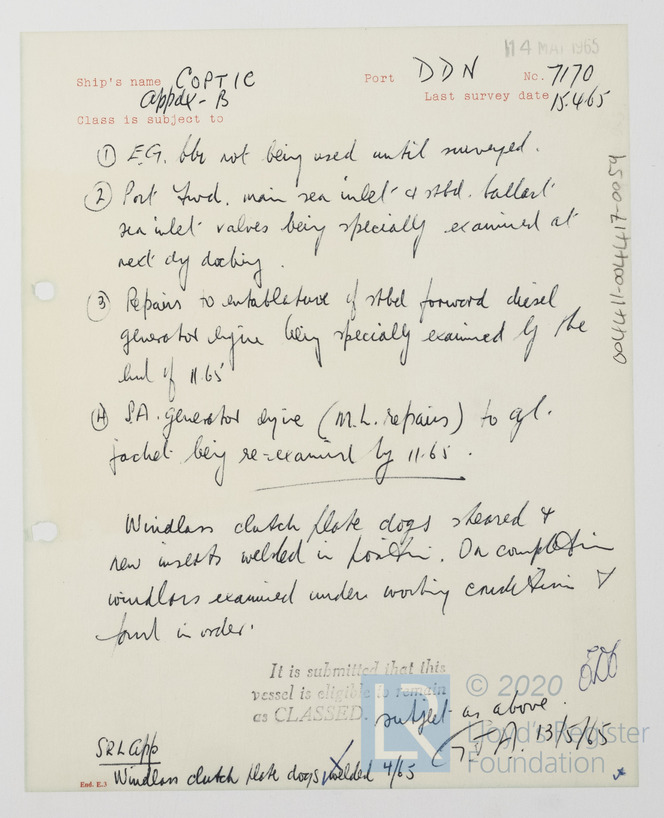 14 MAY 1965
Ship's name COPTIC Port DDN No. 7170
Appdx - B Last survey date 15.4.65
Class is subject to
① E.G. blr not being used until surveyed.
② Port fwd. main sea inlet & stbd. ballast
sea inlet valves being specially examined at
next dry docking.
③ Repairs to entablature of stbd forward diesel
generator engine being specially examined by the
end of 11.65
④ S.A. generator engine (M.L. repairs) to cyl.
jacket being re-examined by 11.65.
Windlass clutch plate dogs sheared &
new inserts welded in position. On completion
windlass examined under working condition &
found in order.
It is submitted that this
vessel is eligible to remain
as CLASSED. subject as above.
J.A. 13/5/65
SRL App
End. E.3 Windlass clutch plate dogs welded 4/65
004411-004417-0054
LR
© 2020
Lloyd's Register
Foundation